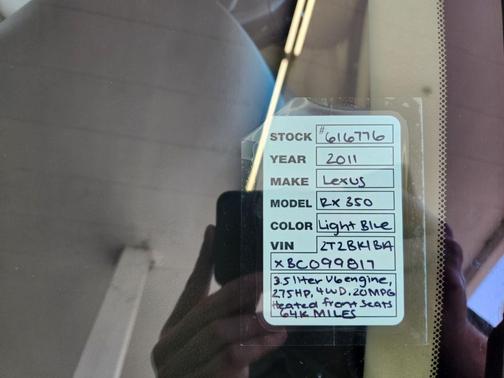 STOCK #616776
YEAR 2011
MAKE Lexus
MODEL RX 350
COLOR Light Blue
VIN 2T2BK1BA
XBC099817
3.5 liter V6 engine,
275HP, 4WD. 20MPG
Heated front Seats
64K MILES